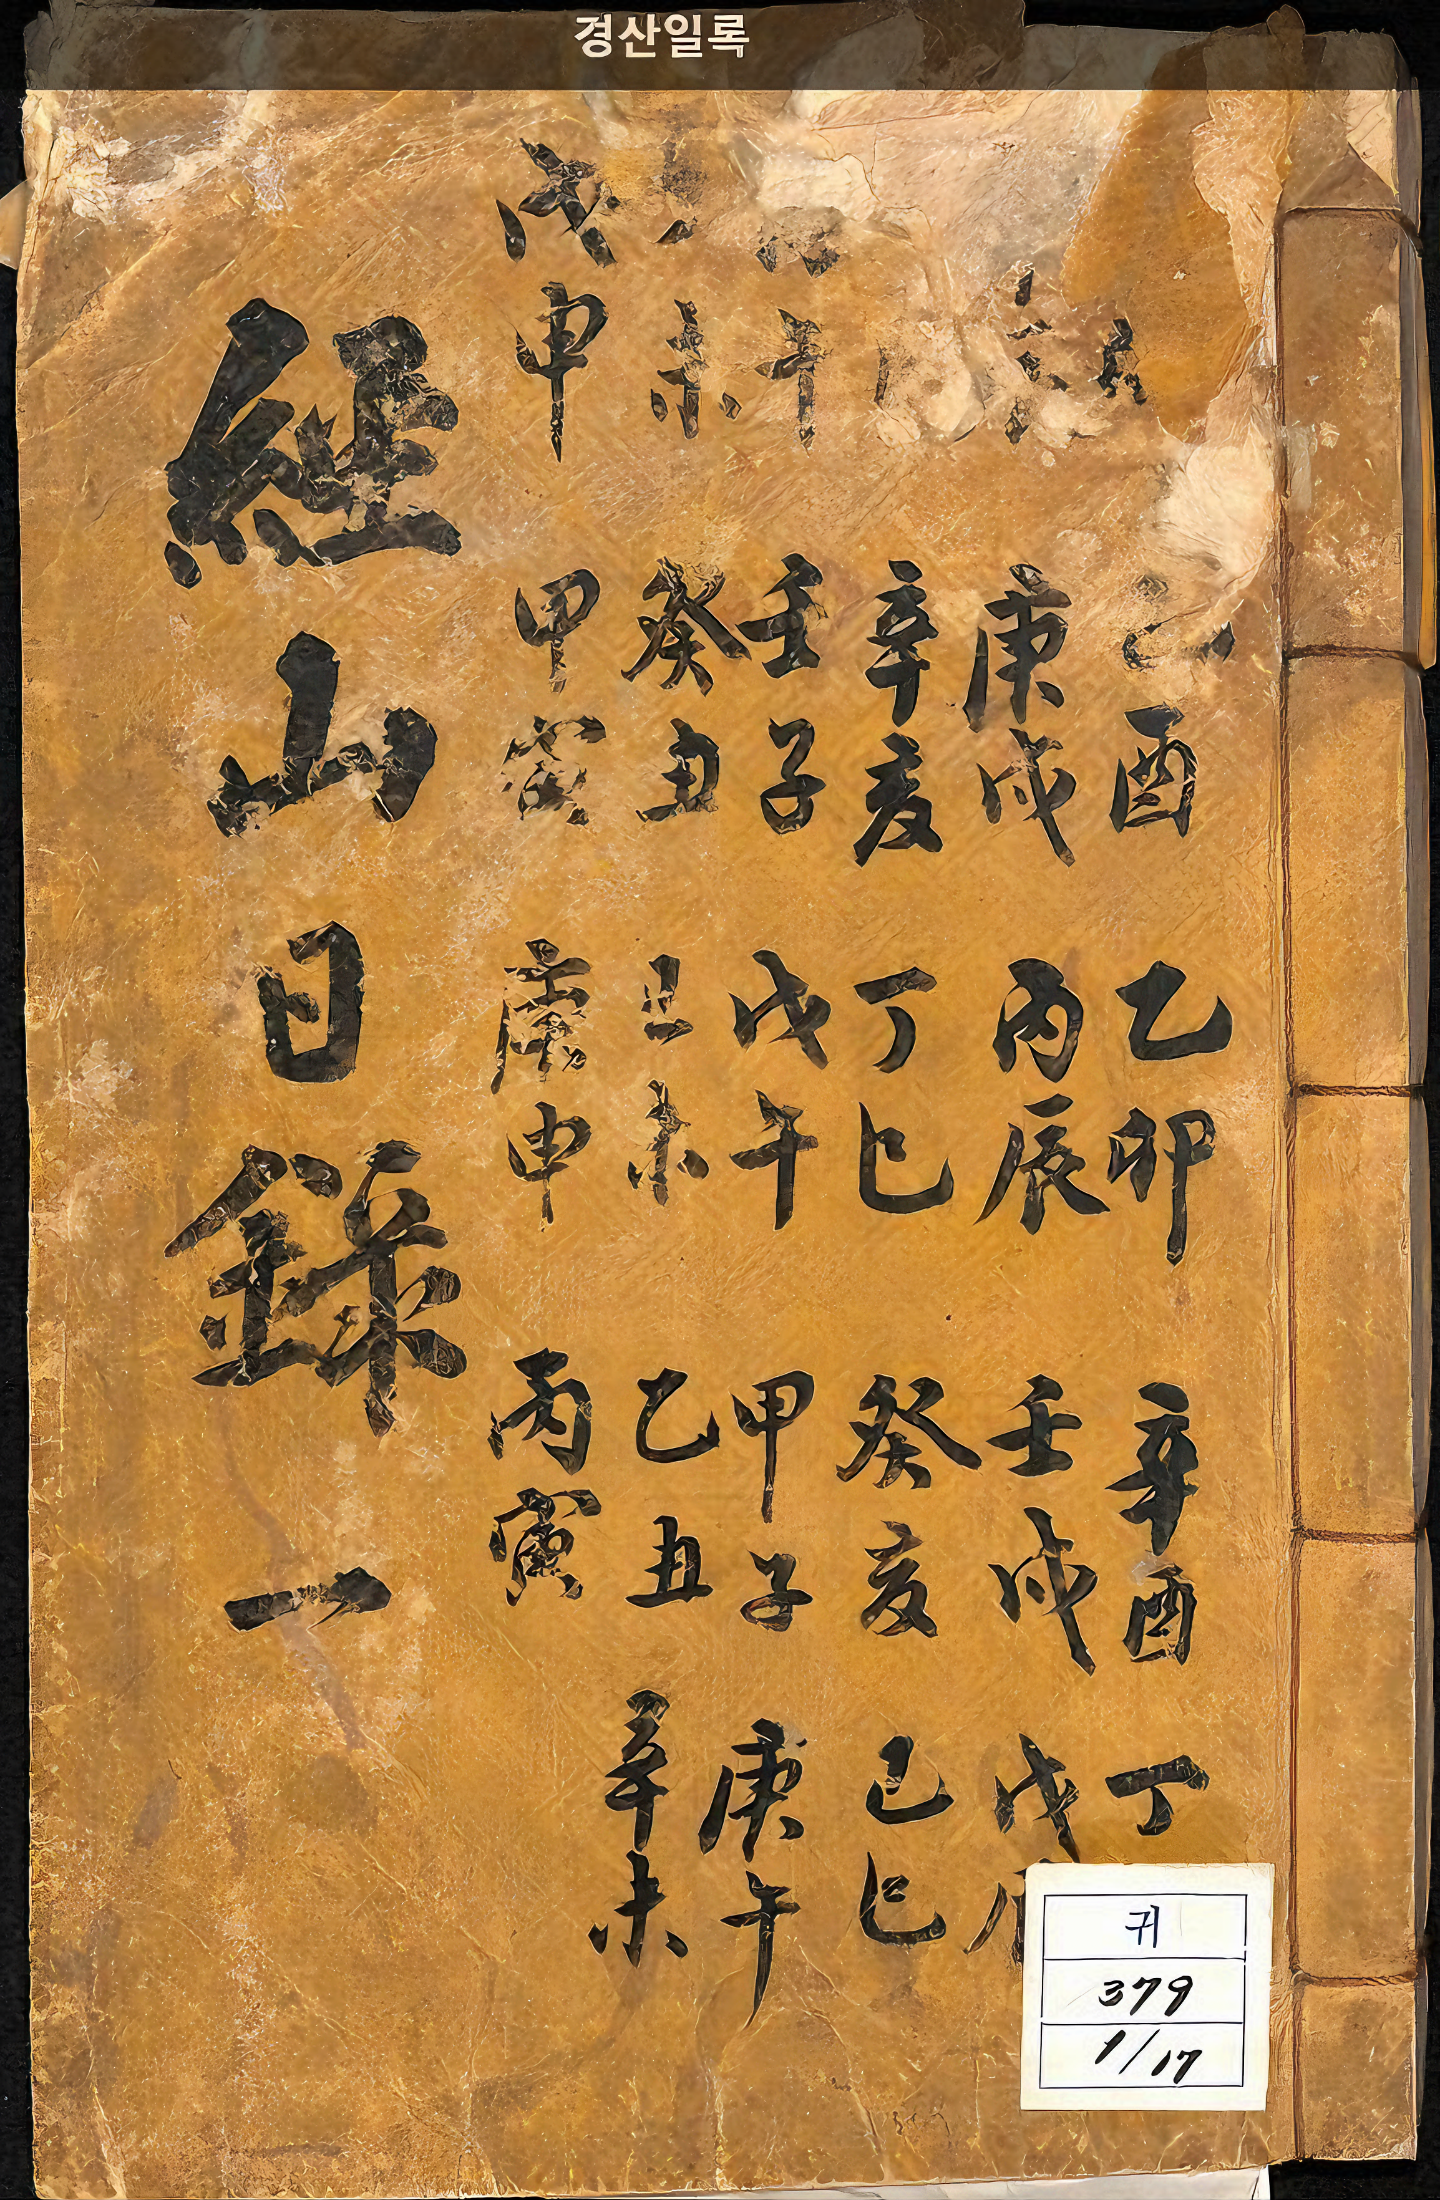 경산일록
酉 乙卯 辛酉 丁
庚戌 丙辰 壬戌 戊
辛亥 丁巳 癸亥 己巳
午 壬子 戊午 甲子 庚午
未 癸丑 己未 乙丑 辛未
戊申 甲寅 庚申 丙寅
經山日錄 一
귀
379
1/17